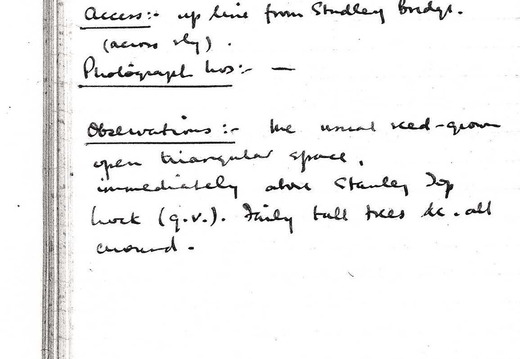 Access:- up line from Studley Bridge.
(across rly).
Photograph Nos:- —
Observations:- the usual weed-grown
open triangular space,
immediately above Stanley Top
Lock (q.v.). Fairly tall trees &c. all
around.